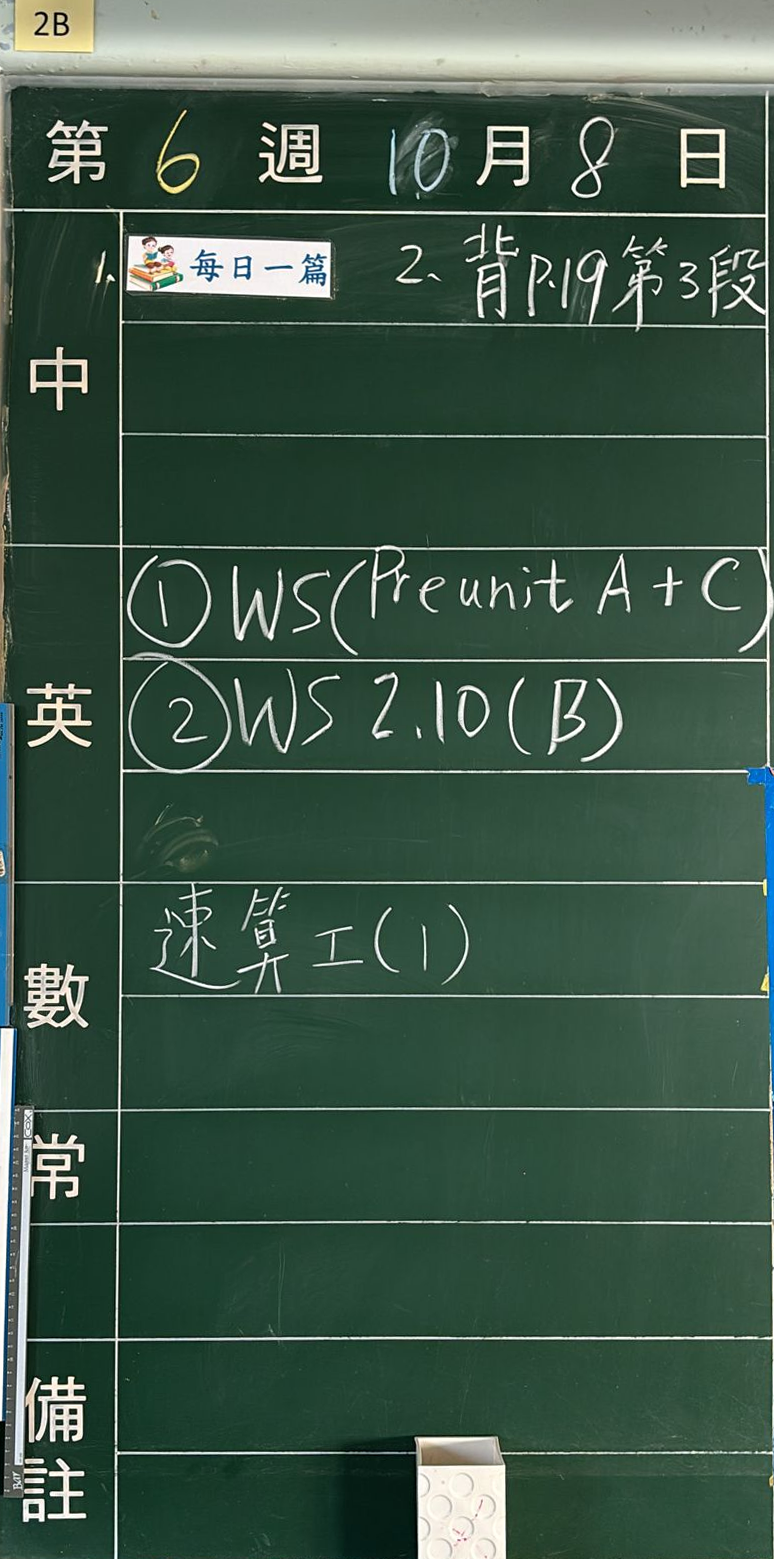 2B
第 6 週 10 月 8 日
中
1、每日一篇 2、背P.19第3段
英
① WS(Preunit A + C)
② WS 2.10(B)
數
速算工(1)
常
備註